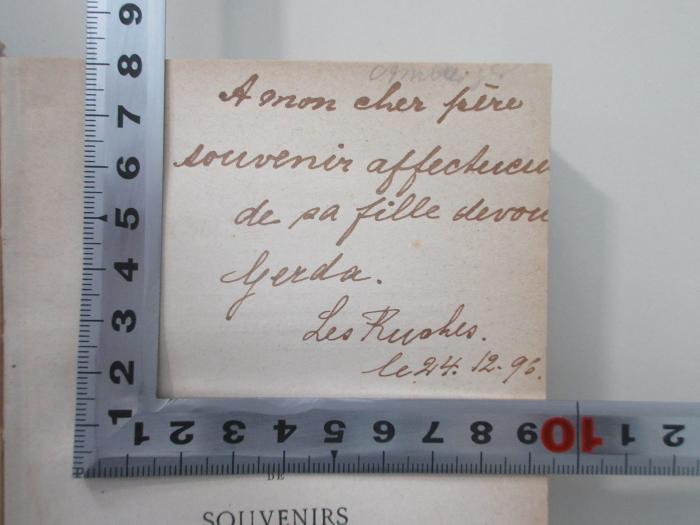 A mon cher père
souvenir affectueu
de sa fille devou
Gerda.
Les Ruches.
le 24. 12. 96.
9
8
7
6
5
4
3
2
1
1 2 3 4 5 6 7 8 9 10 1 2
DE
SOUVENIRS